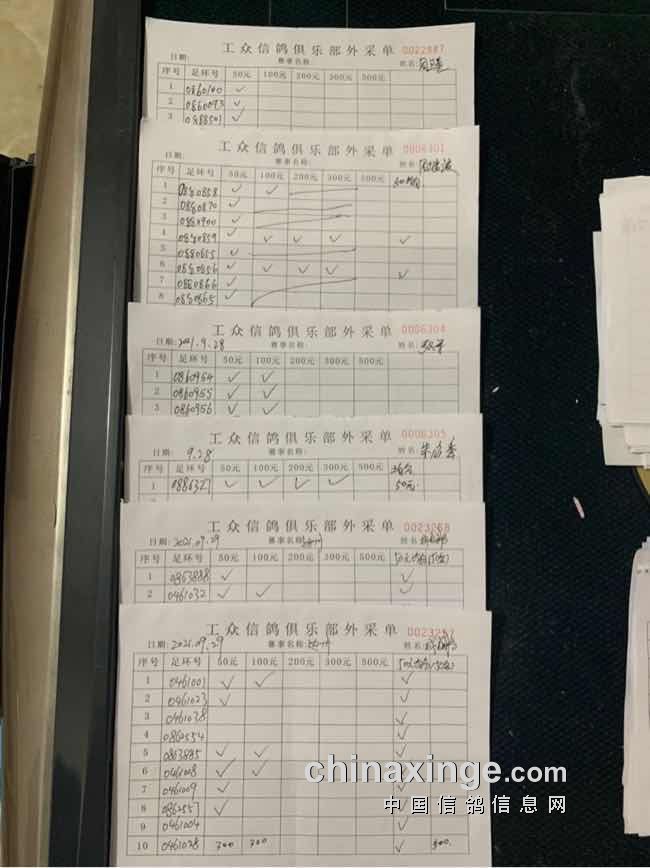 工众信鸽俱乐部外采单 0022887
日期: 赛事名称: 姓名:
序号 足环号 50元 100元 200元 300元 500元
1 0860100 ✓
2 0860093 ✓
3 0888501 ✓
工众信鸽俱乐部外采单 0006301
日期: 赛事名称: 姓名:
序号 足环号 50元 100元 200元 300元 500元
1 0880858 ✓ ✓
2 0880870 ✓
3 0880900 ✓
4 0880859 ✓ ✓ ✓ ✓ ✓
5 0880855 ✓
6 0880856 ✓ ✓ ✓ ✓ ✓
7 0880866 ✓
8 0880865 ✓
工众信鸽俱乐部外采单 0006304
日期: 2021.9.28 赛事名称: 姓名:
序号 足环号 50元 100元 200元 300元 500元
1 0860954 ✓ ✓
2 0860955 ✓ ✓
3 0860956 ✓ ✓
工众信鸽俱乐部外采单 0006305
日期: 9.28 赛事名称: 姓名:
序号 足环号 50元 100元 200元 300元 500元
1 0886327 ✓ ✓ ✓ ✓ 50元.
工众信鸽俱乐部外采单 0023058
日期: 2021.09.29 赛事名称: 姓名:
序号 足环号 50元 100元 200元 300元 500元
1 0863888 ✓ ✓
2 0461032 ✓ ✓ ✓
工众信鸽俱乐部外采单 0023257
日期: 2021.09.29 赛事名称: 姓名:
序号 足环号 50元 100元 200元 300元 500元
1 0461001 ✓ ✓ ✓
2 0461023 ✓ ✓
3 0461038 ✓
4 0862554 ✓
5 0863885 ✓ ✓ ✓
6 0461008 ✓ ✓ ✓
7 0461009 ✓ ✓
8 0862557 ✓ ✓
9 0461004 ✓
10 0461028 300 300 ✓ 300.
chinaxinge.com
中国信鸽信息网